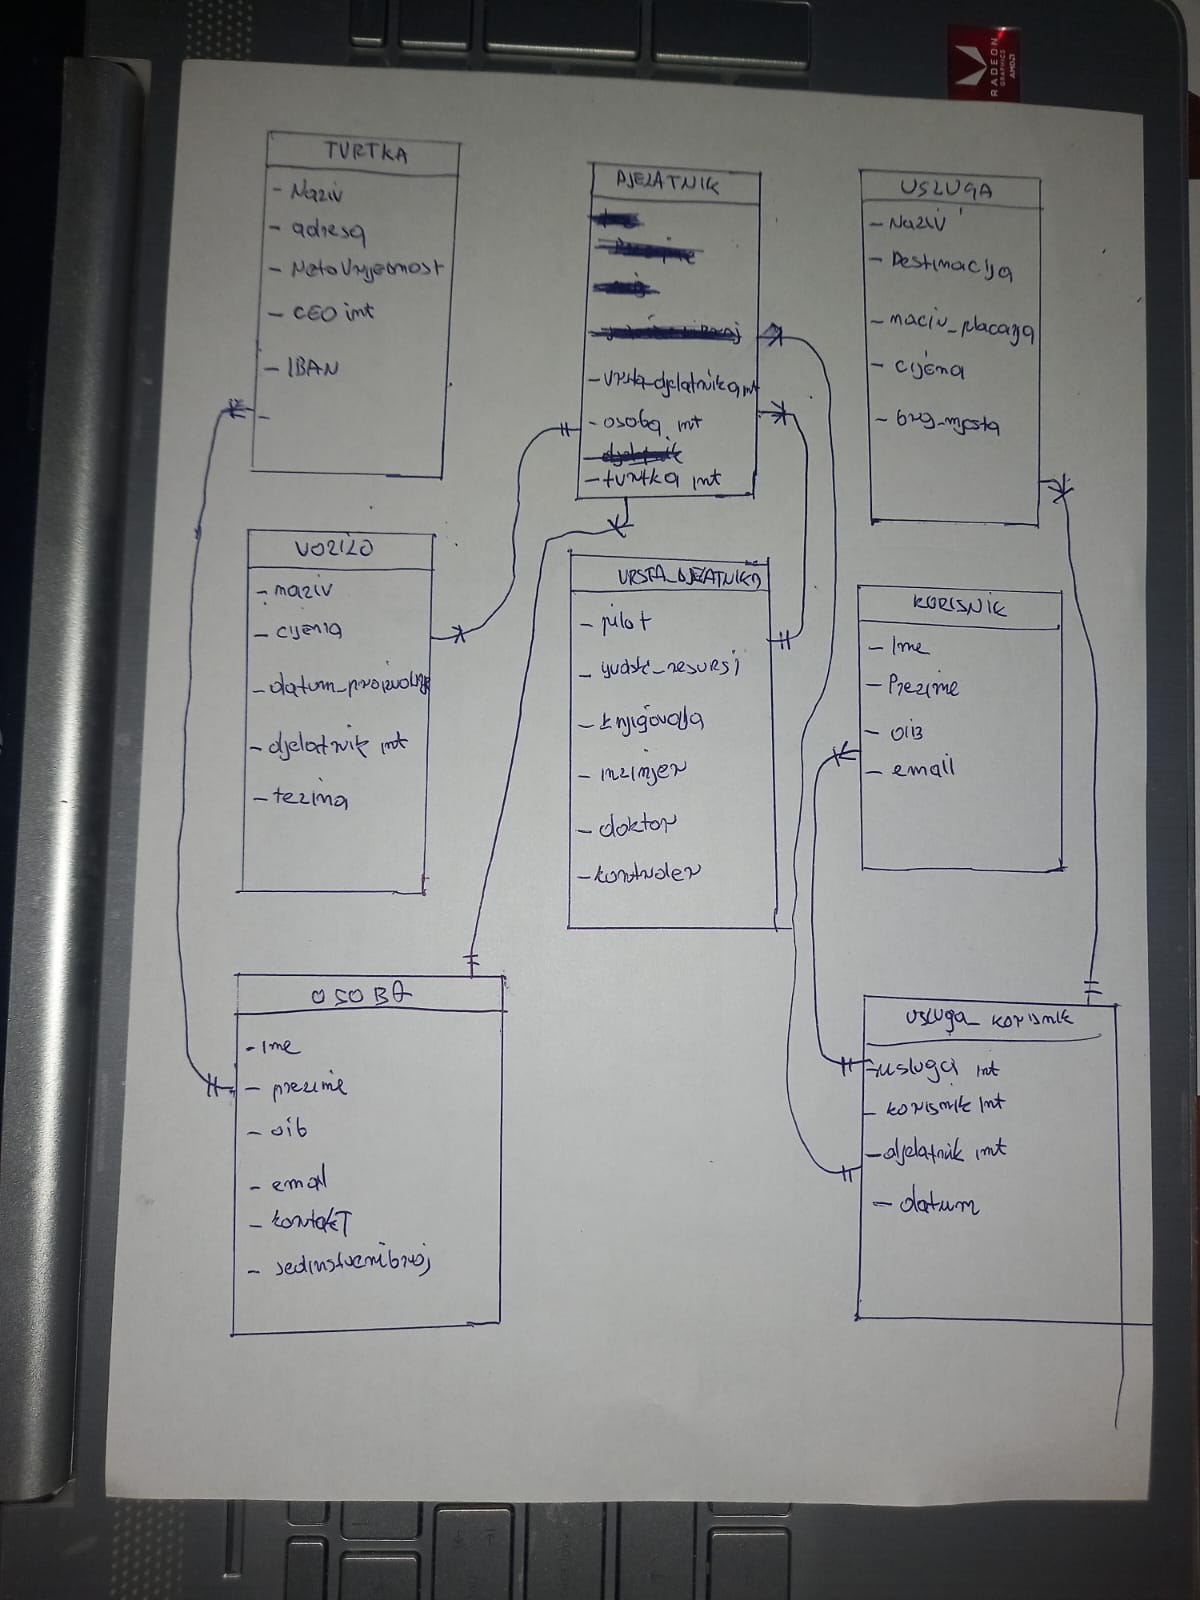 RADEON
GRAPHICS
AMD
TVRTKA
- Naziv
- adresa
- NetoVrijednost
- CEO int
- IBAN
-
DJELATNIK
- vrsta_djelatnika int
- osoba int
- tvrtka int
USLUGA
- Naziv
- Destinacija
- naciv_placaja
- cijena
- broj_mjesta
VOZILO
- naziv
- cijena
- datum_proizvodnje
- djelatnik int
- tezina
VRSTA_DJELATNIKA
- pilot
- ljudski_resursi
- knjigovođa
- inzinjer
- doktor
- kontroler
KORISNIK
- Ime
- Prezime
- OIB
- email
OSOBA
- Ime
- prezime
- oib
- email
- kontakt
- jedinstvenibroj
usluga_korisnik
- usluga int
- korisnik int
- djelatnik int
- datum